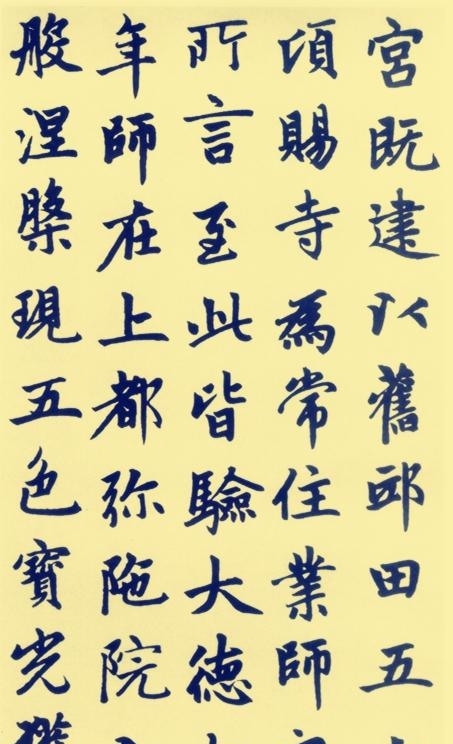 宮既建以舊邸田五
頃賜寺為常住業師
所言至此皆驗大德
年師在上都弥陁院
般涅槃現五色寶光